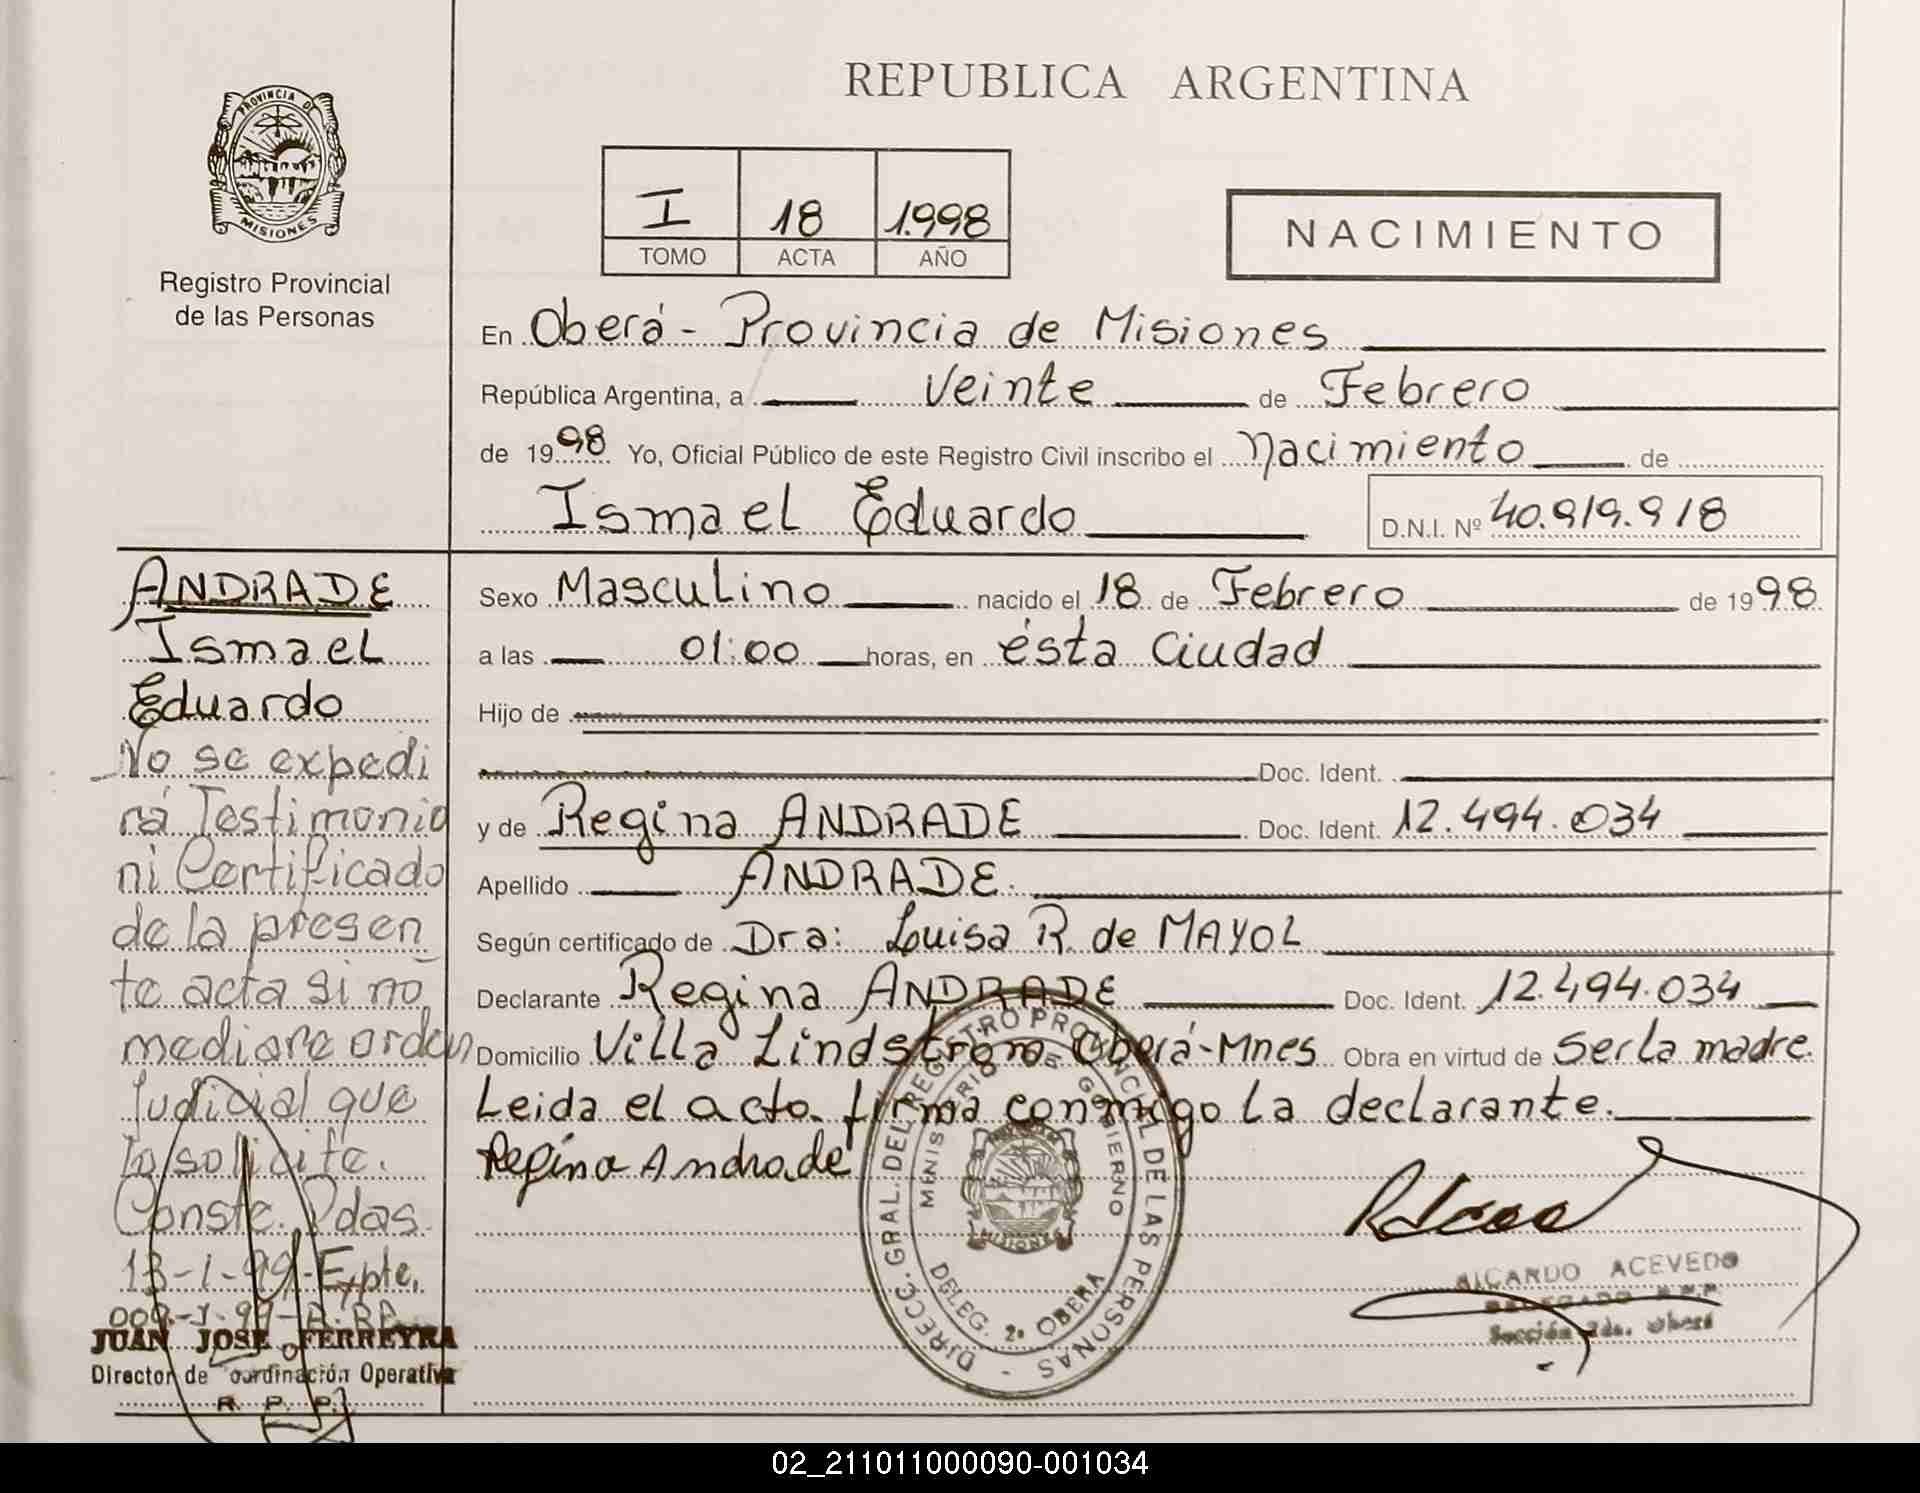 PROVINCIA DE
MISIONES
Registro Provincial
de las Personas
REPUBLICA ARGENTINA
I 18 1.998
TOMO ACTA AÑO
NACIMIENTO
En Oberá - Provincia de Misiones
República Argentina, a Veinte de Febrero
de 1998 Yo, Oficial Público de este Registro Civil inscribo el Nacimiento de
Ismael Eduardo D.N.I. Nº 40.919.918
ANDRADE
Ismael
Eduardo
No se expedi
rá Testimonio
ni Certificado
de la presen
te acta si no
mediare orden
Judicial que
lo solicite.
Conste. Pdas.
13-1-99-Expte.
JUAN JOSE FERREYRA
Director de Coordinación Operativa
R. P. P.
Sexo Masculino nacido el 18 de Febrero de 1998
a las 01:00 horas, en ésta Ciudad
Hijo de
Doc. Ident.
y de Regina ANDRADE Doc. Ident. 12.494.034
Apellido ANDRADE.
Según certificado de Dra: Luisa R. de MAYOL
Declarante Regina ANDRADE Doc. Ident. 12.494.034
Domicilio Villa Lindstrom Oberá-Mnes Obra en virtud de ser la madre.
Leida el acta firma conmigo la declarante.
Regina Andrade
DIRECC. GRAL. DEL REGISTRO PROVINCIAL DE LAS PERSONAS -
MINISTERIO DE GOBIERNO
MISIONES
DELEG. 2ª OBERA
RICARDO ACEVEDO
DELEGADO R.P.P.
Sección 2da. Oberá
02_211011000090-001034